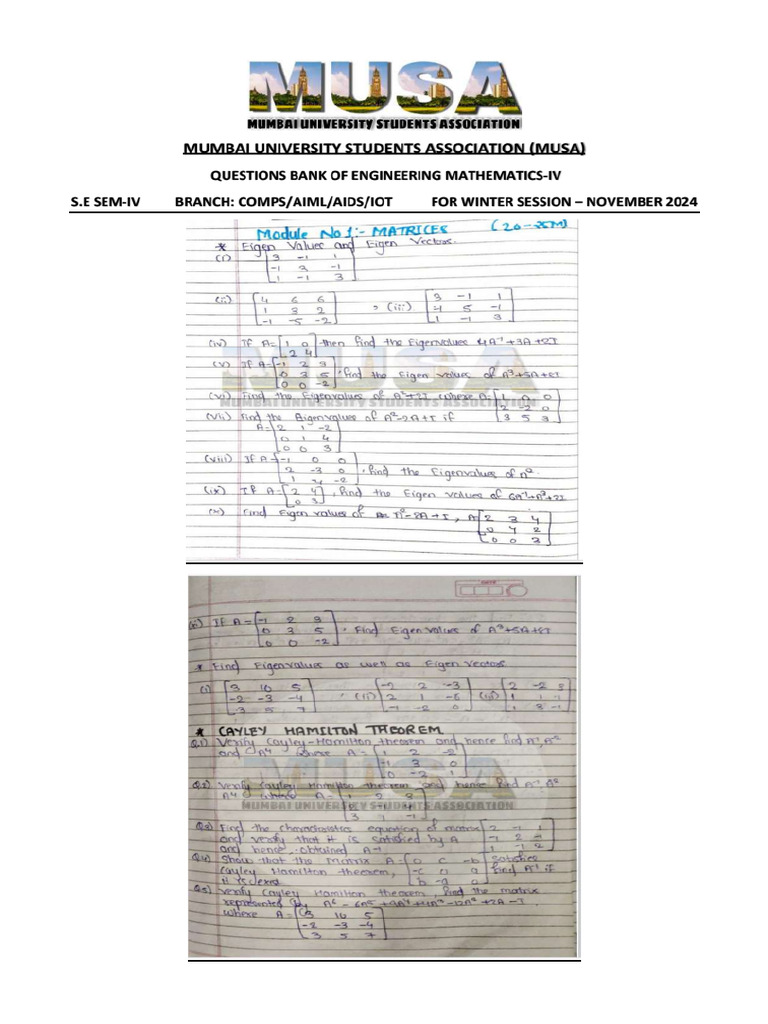 MUSA
MUMBAI UNIVERSITY STUDENTS ASSOCIATION
MUMBAI UNIVERSITY STUDENTS ASSOCIATION (MUSA)
QUESTIONS BANK OF ENGINEERING MATHEMATICS-IV
S.E SEM-IV BRANCH: COMPS/AIML/AIDS/IOT FOR WINTER SESSION – NOVEMBER 2024
Module No 1:- MATRICES (20-25M)
* Eigen Values and Eigen Vectors.
(i) [3 -1 1
-1 3 -1
1 -1 3]
(ii) [4 6 6 , (iii) [3 -1 1
1 3 2 4 5 -1
-1 -5 -2] 1 -1 3]
(iv) If A=[1 0 then find the Eigenvalues 4A⁻¹+3A+2I
2 4]
(v) If A=[-1 2 3
0 3 5 , find the Eigen values of A³+5A+8I
0 0 -2]
(vi) Find the Eigenvalues of A²+2I where A=[1 0 0
2 -2 0
3 5 3]
(vii) Find the Eigenvalues of A²-2A+I if
A=[2 1 -2
0 1 4
0 0 3]
(viii) If A=[-1 0 0
2 -3 0 , find the Eigenvalues of
1 4 -2]
(ix) If A=[2 4 , find the Eigen values of 6A⁻¹+A³+2I
0 3]
(x) Find Eigen values of A²-2A+I, A=[2 3 4
0 4 2
0 0 3]
If A=[-1 2 3
0 3 5 . Find Eigen values of A³+5A+8I
0 0 -2]
* Find Eigenvalues as well as Eigen Vectors
(i) [3 10 5 , (ii) [-2 2 -3 (iii) [2 -2 3
-2 -3 -4 2 1 -6 1 1 1
3 5 7] -1 -2 0] 1 3 -1]
* CAYLEY HAMILTON THEOREM
Q.1) Verify Cayley-Hamilton theorem and hence find A⁻¹, A⁻²
and A⁴ where A=[1 2 -2
-1 3 0
0 -2 1]
Q.2) Verify Cayley Hamilton theorem and hence find A⁻¹, A⁻²
A⁴ where A=[1 2 3
-1 4
3 1 -1]
Q.3) Find the characteristics equation of matrix [2 -1 1
and verify that it is satisfied by A 2
and hence obtained A⁻¹ 1 -1 2]
Q.4) Show that the Matrix A=[0 c -b satisfies
Cayley Hamilton theorem, -c 0 a find A⁻¹ if
it is exist b -a 0]
Q.5) Verify Cayley Hamilton theorem, find the matrix
represented by A⁶-6A⁵+9A⁴+4A³-12A²+2A-I
where A=[3 10 5
-2 -3 -4
3 5 7]